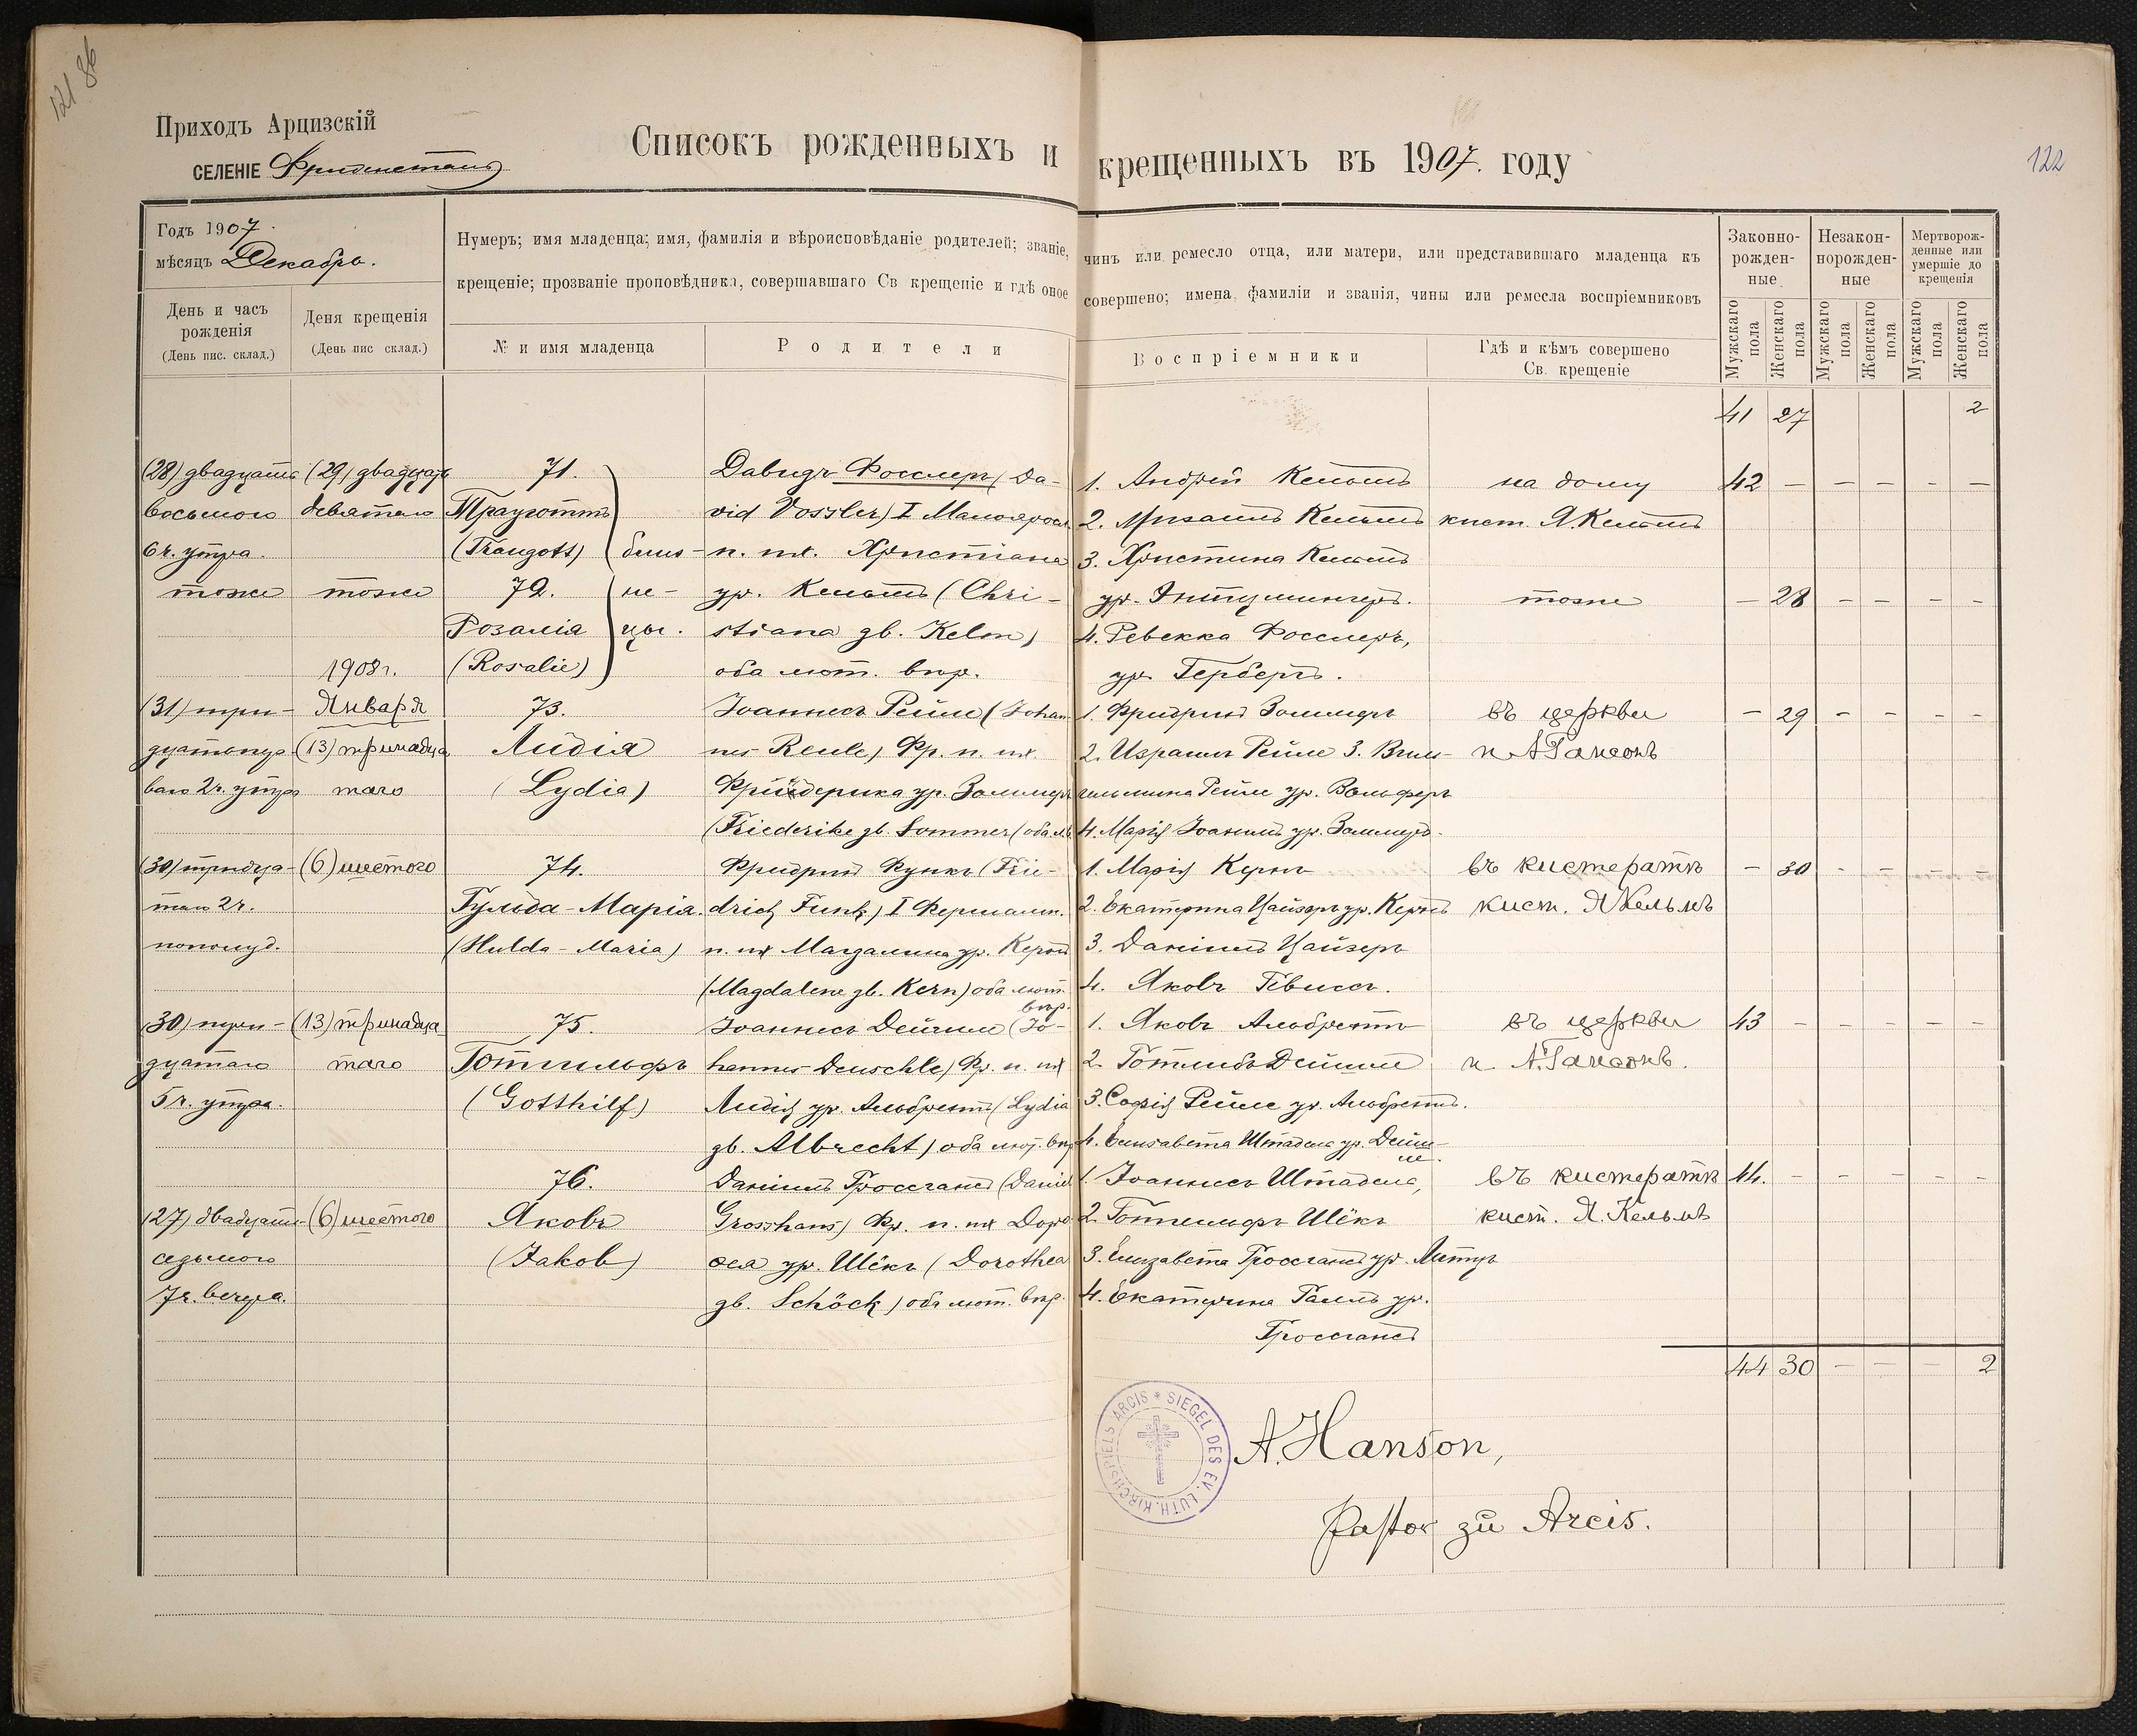 121 86
Приходъ Арцизскій
СЕЛЕНІЕ Фриденсталь
Списокъ рожденныхъ и крещенныхъ въ 1907. году
122
Годъ 1907.
мѣсяцъ Декабрь.
Нумеръ; имя младенца; имя, фамилія и вѣроисповѣданіе родителей; званіе, чинъ или ремесло отца, или матери, или представившаго младенца къ
крещеніе; прозваніе проповѣдника, совершавшаго Св крещеніе и гдѣ оное совершено; имена, фамиліи и званія, чины или ремесла воспріемниковъ
День и часъ рожденія
(День пис. склад.)
Деня крещенія
(День пис склад.)
№ и имя младенца
Родители
Воспріемники
Гдѣ и кѣмъ совершено
Св. крещеніе
Законно-
рожден-
ные
Незакон-
норожден-
ные
Мертворож-
денные или
умершіе до
крещенія
Мужскаго пола
Женскаго пола
Мужскаго пола
Женскаго пола
Мужскаго пола
Женскаго пола
41 27 2
(28) двадцать (29) двадцать 71. Давидъ Фосслеръ (Da- 1. Андрей Кельмъ на дому 42 — — — — —
восьмого девятаго Трауготтъ vid Vossler) I Малояросл. 2. Кельмъ кист. Я. Кельмъ
6 ч. утра. (Traugott) близ- п. пж. Христіана 3. Христина Кельмъ
тоже тоже 72. не- ур. Кельмъ (Chri- ур. тоже — 28 — — — —
Розалія цы. stiana gb. Kelm) 4. Ревекка Фосслеръ,
1908 г. (Rosalie) оба лют. впр. ур. Гербертъ.
(31) три- Января 73. Іоаннесъ Рейле (Johan- 1. Фридрихъ Зоммеръ въ церкви — 29 — — — —
дцать пер- (13) тринадца Лидія nes Reule) Фр. п. пж. 2. Израиль Рейле 3. Виль- п А Гансонъ
ваго 2 ч. утра таго (Lydia) Фридерика ур. Зоммеръ гельмина Рейле ур. Вольферъ
(Friederike gb. Sommer) оба лт. 4. Марія Іоахимъ ур. Зоммеръ.
(30) тридца- (6) шестого 74. Фридрихъ Функъ (Frie- 1. Марія Кернъ въ кистератѣ — 30 - - - -
таго 2 ч. Гульда-Марія. drich Funk) I Фершамп. 2. Екатерина Цайзеръ ур. Кернъ кист. Я Кельмъ
пополуд. (Hulda-Maria) п. пж Магдалина ур. Кернъ 3. Даніилъ Цайзеръ
(Magdalene gb. Kern) оба лют. впр. 4. Яковъ Гёвисъ.
(30) три- (13) тринадца 75. Іоаннесъ Дейшле (Jo- 1. Яковъ Альбрехтъ въ церкви 43 — — — — —
дцатаго таго Готгильфъ hannes Deuschle) Фр. п. пж 2. Готлибъ Дейшле п. А. Гансонъ.
5 ч. утра. (Gotthilf) Лидія ур. Альбрехтъ (Lydia 3. Софія Рейле ур. Альбрехтъ.
gb. Albrecht) оба лют. впр 4. Елизавета Штадель ур. Дейш-
ле.
76. Даніилъ Гроссгансъ (Daniel 1. Іоаннесъ Штадель, въ кистератѣ 44. — — — — —
(27) двадцать (6) шестого Яковъ Grosshans) Фр. п. пж Доро- 2. Готгильфъ Шёкъ кист. Я. Кельмъ
седьмого (Jakob) ѳея ур. Шёкъ (Dorothea 3. Елизавета Гроссгансъ ур.
7 ч. вечера. gb. Schöck) оба лют. впр. 4. Екатерина ур.
Гроссгансъ
44 30 — — — 2
SIEGEL DES EV. LUTH. KIRCHSPIELS ARCIS
A. Hanson,
Pastor zu Arcis.